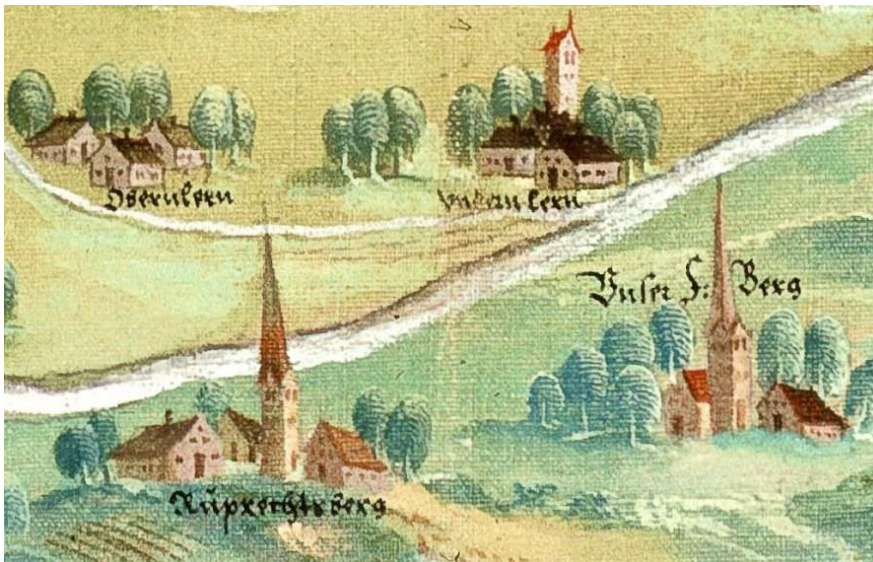 Obernkern
Vndernkern
Vnser F: Berg
Ruprechtsberg